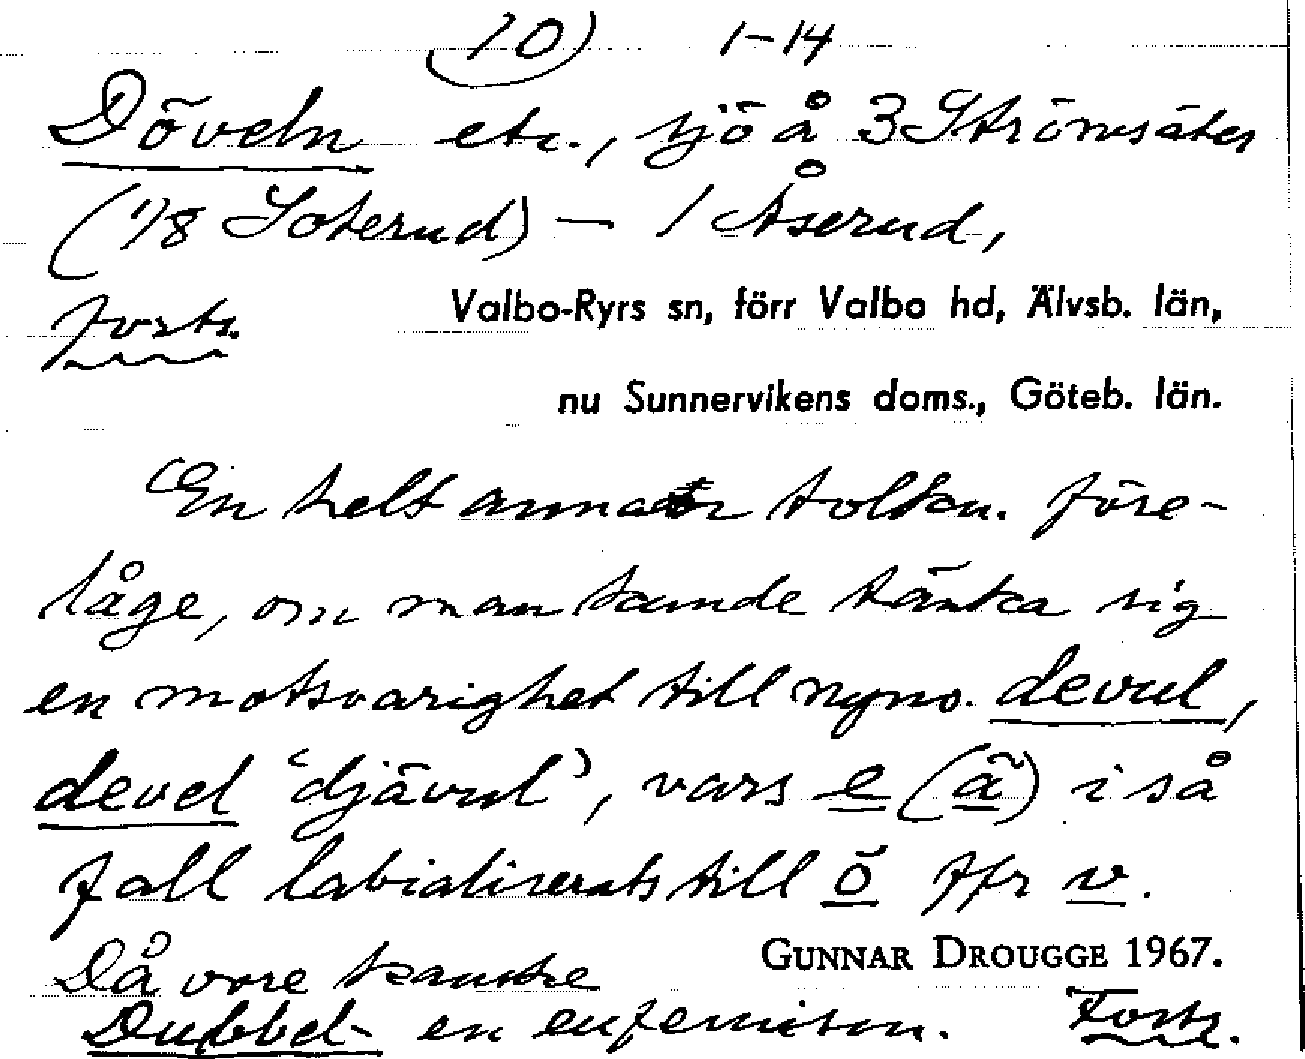 10) 1-14
Döveln etc., sjö å 3 Strömsäter
(1/8 Soterud) — 1 Åserud,
forts. Valbo-Ryrs sn, förr Valbo hd, Älvsb. län,
nu Sunnervikens doms., Göteb. län.
En helt annan tolkn. före-
låge, om man kunde tänka sig
en motsvarighet till nyno. devul,
devel 'djävul', vars e (ä) i så
fall labialiserats till ö ffr v.
Då vore kanske GUNNAR DROUGGE 1967.
Dubbel- en eufemism. Forts.